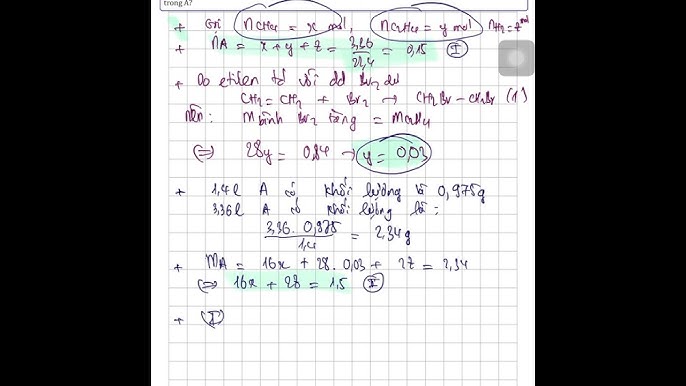 trong A?
+ Gọi nCH4 = x mol, nC2H4 = y mol nH2 = z mol
+ nA = x + y + z = 3,36/22,4 = 0,15 (I)
+ Do etilen td với dd Br2 dư
CH2 = CH2 + Br2 → CH2Br – CH2Br (1)
Nên: m bình Br2 tăng = mC2H4
(=) 28y = 0,84 → y = 0,03
+ 1,4l A có khối lượng là 0,975g
3,36l A có khối lượng là:
3,36. 0,975/1,4 = 2,34g
+ mA = 16x + 28. 0,03 + 2z = 2,34
(=) 16x + 2z = 1,5 (II)
+ (I)